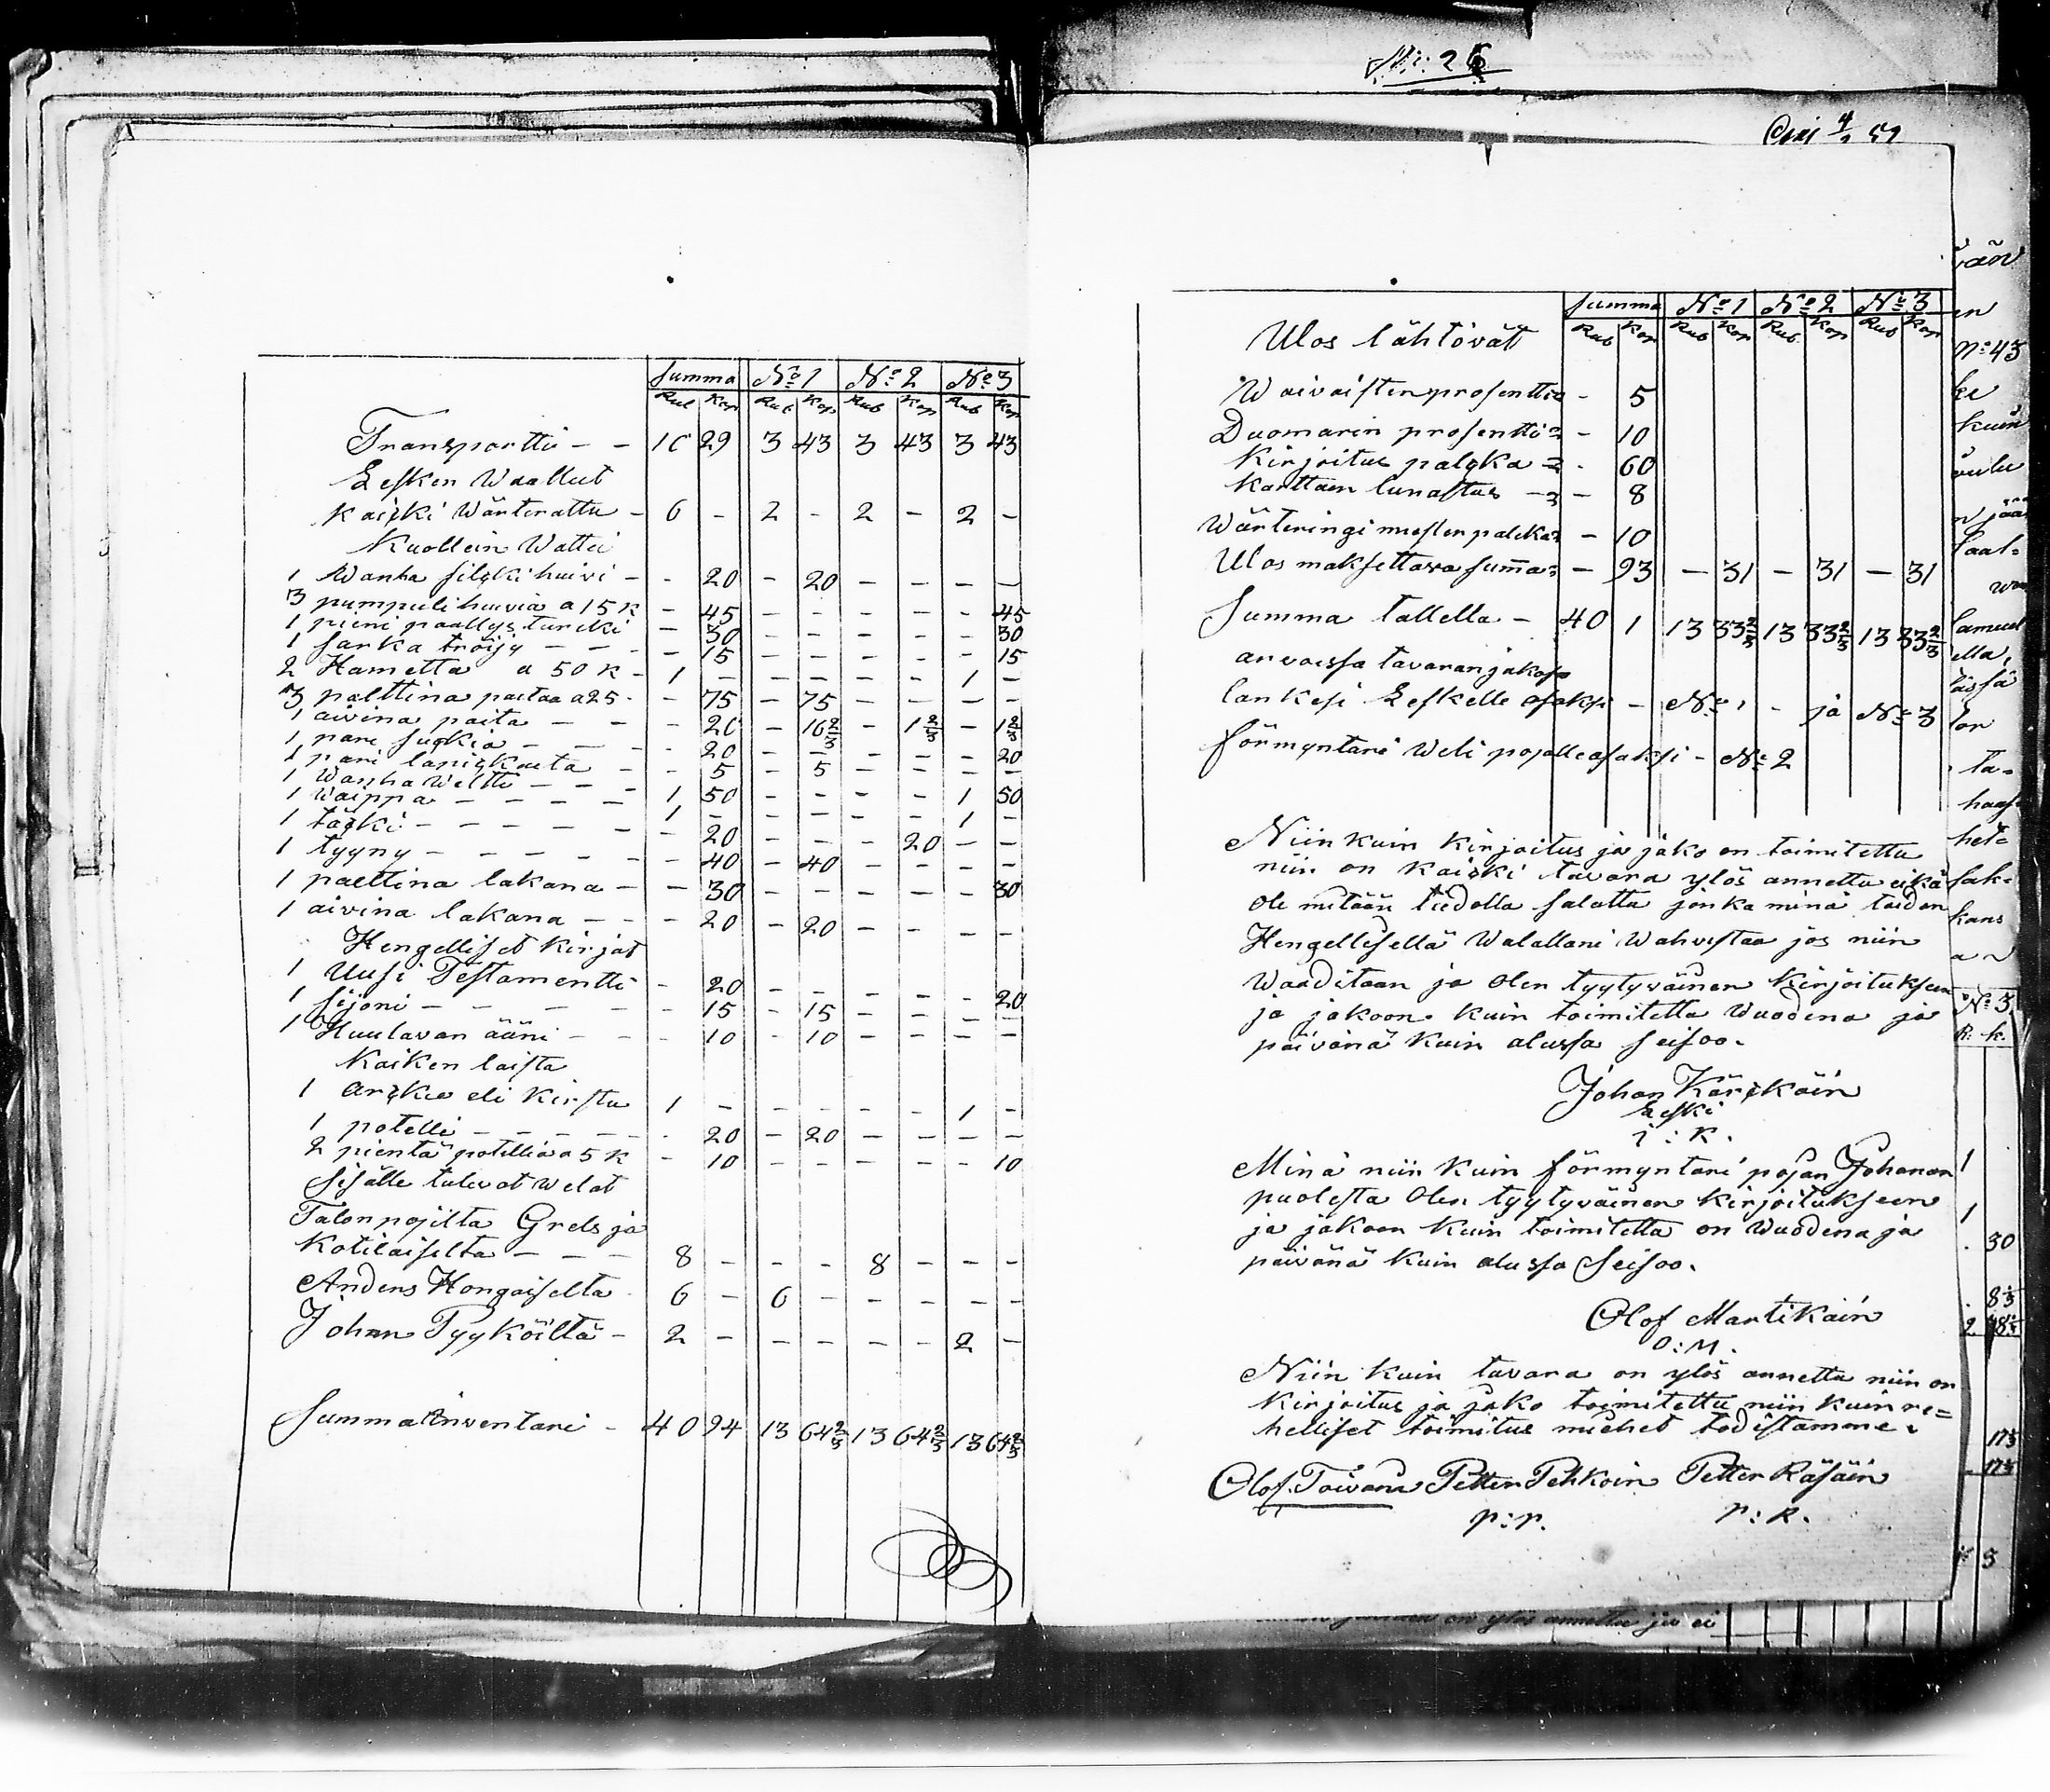 Summa No 1 No 2 No 3
Rub Kop Rub Kop Rub Kop Rub Kop
Transportti - - 10 29 3 43 3 43 3 43
Lesken Waallut
Kaicki Wärterattu - 6 - 2 - 2 - 2 -
Kuollein Wattei
1 Wanha silcki huivi - - 20 - 20 - - - -
3 pumpuli huivia a 15 k - 45 - - - - - 45
1 pieni paallys turcki - 30 - - - - - 30
1 sarka tröijy - - - 15 - - - - - 15
2 Hametta a 50 K - 1 - - - - - 1 -
3 palttina paitaa a 25 - - 75 - 75 - - - -
1 aivina paita - - - 20 - 16 2/3 - 1 2/3 - 1 2/3
1 pari suckia - - - 20 - - - - - 20
1 pari lapickaita - - 5 - 5 - - - -
1 Wanha Weltti - - - 1 50 - - - - 1 50
1 Waippa - - - - 1 - - - - - 1 -
1 täcki - - - - - 20 - - - 20 - -
1 tyyny - - - - - 40 - 40 - - - -
1 palttina lakana - - 30 - - - - - 30
1 aivina lakana - - - 20 - 20 - - - -
Hengelliset Kirjat
1 Uusi Testamentti - 20 - - - - - 20
1 Sijoni - - - - 15 - 15 - - - -
1 Huutavan ääni - - - 10 - 10 - - - -
Kaiken laista
1 arckku eli Kirstu 1 - - - - - 1 -
1 potelli - - - - - 20 - 20 - - - -
2 pientä potellia a 5 K - 10 - - - - - 10
Sisälle tulevat welat
Talonpojilta Grels ja
Kotilaiselta - - - 8 - - - 8 - - -
Anders Hongaiselta 6 - 6 - - - - -
Johan Pyyköiltä - 2 - - - - - 2 -
Summa Inventari - 40 94 13 64 2/3 13 64 2/3 13 64 2/3
No: 26
Summa No 1 No 2 No 3
Ulos lähtövät Rub Kop Rub Kop Rub Kop Rub Kop
Waivaisten prosentti - 5
Duomarin prosentti - 10
Kirjoitus palcka - 60
Karttain lunastus - - 8
Wärteringi miesten palcka - 10
Ulos maksettava summa - 93 - 31 - 31 - 31
Summa tallella - 40 1 13 33 2/3 13 33 2/3 13 33 2/3
arvoissa tavaran jakosa
lankesi Leskelle osaksi - No 1 - ja No 3
förmyntäri Weli pojalle osaksi - No 2
Niin kuin Kirjoitus ja jako on toimitettu
niin on Kaicki tavara ylös annettu eikä
ole mitään tiedolla salattu jonka minä taidan
Hengellisellä Walallani Wahvistaa jos niin
Waaditaan ja olen tyytyväinen Kirjoitukseen
ja jakoon kuin toimitettu Wuodena ja
päivänä kuin alussa seisoo.
Johan Kärckäin
Leski
j : K.
Minä niin kuin förmyntäri pojan Johanan
puolesta olen tyytyväinen Kirjoitukseen
ja jakoon kuin toimitettu on Wuodena ja
päivänä kuin alussa seisoo.
Olof Martikain
O : M.
Niin kuin tavara on ylös annettu niin on
Kirjoitus ja jako toimitettu niin kuin re=
helliset toimitus miehet todistamme.
Olof Toivane Petter Pehkoin Petter Räsäin
p : p. p : R.
No 43
kuin
Samuel
ella,
ta=
kans
No 3
R: k.
1
1
30
on ylös annettu ja ei